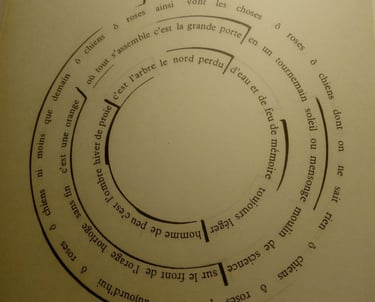 c'est l'arbre le nord perdu d'eau et de feu de mémoire toujours léger homme de peu c'est l'ombre hiver de proie
où tout s'assemble c'est la grande porte en un tournemain soleil ou mensonge moulin de science sur le front de l'orage horloge sans fin c'est une orange
ô roses ô chiens ni moins que demain ô chiens ô roses ainsi vont les choses ô roses ô chiens dont on ne sait rien ô chiens ô roses
aujourd'hui